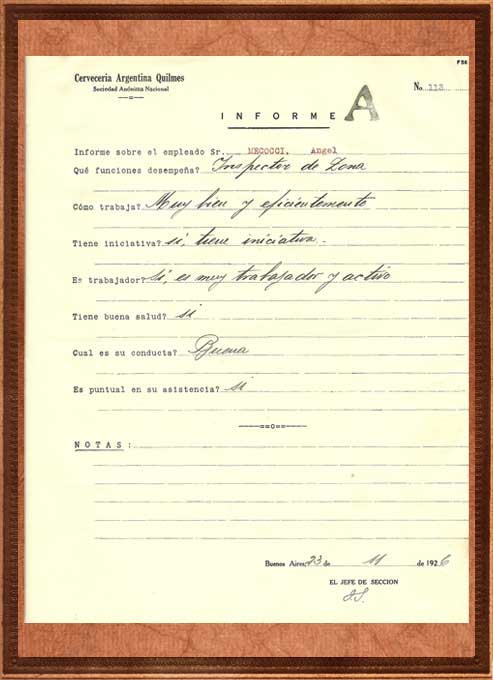 F 56
Cervecería Argentina Quilmes
Sociedad Anónima Nacional
No. 113
INFORME A
Informe sobre el empleado Sr. MECOCCI, Angel
Qué funciones desempeña? Inspector de Zona
Cómo trabaja? Muy bien y eficientemente
Tiene iniciativa? si, tiene iniciativa.-
Es trabajador? Si, es muy trabajador y activo
Tiene buena salud? si
Cual es su conducta? Buena
Es puntual en su asistencia? si
NOTAS:
Buenos Aires, 23 de 11 de 1926
EL JEFE DE SECCION